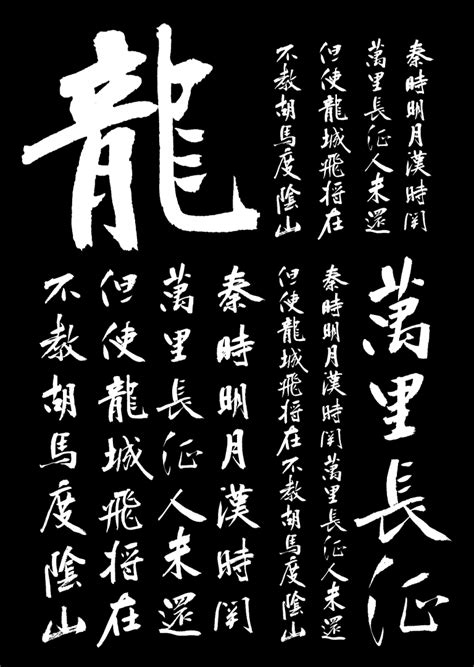 秦時明月漢時關
萬里長征人未還
但使龍城飛將在
不教胡馬度陰山
龍
萬里長征
秦時明月漢時關萬里長征人未還
但使龍城飛將在不教胡馬度陰山
秦時明月漢時關
萬里長征人未還
但使龍城飛將在
不教胡馬度陰山